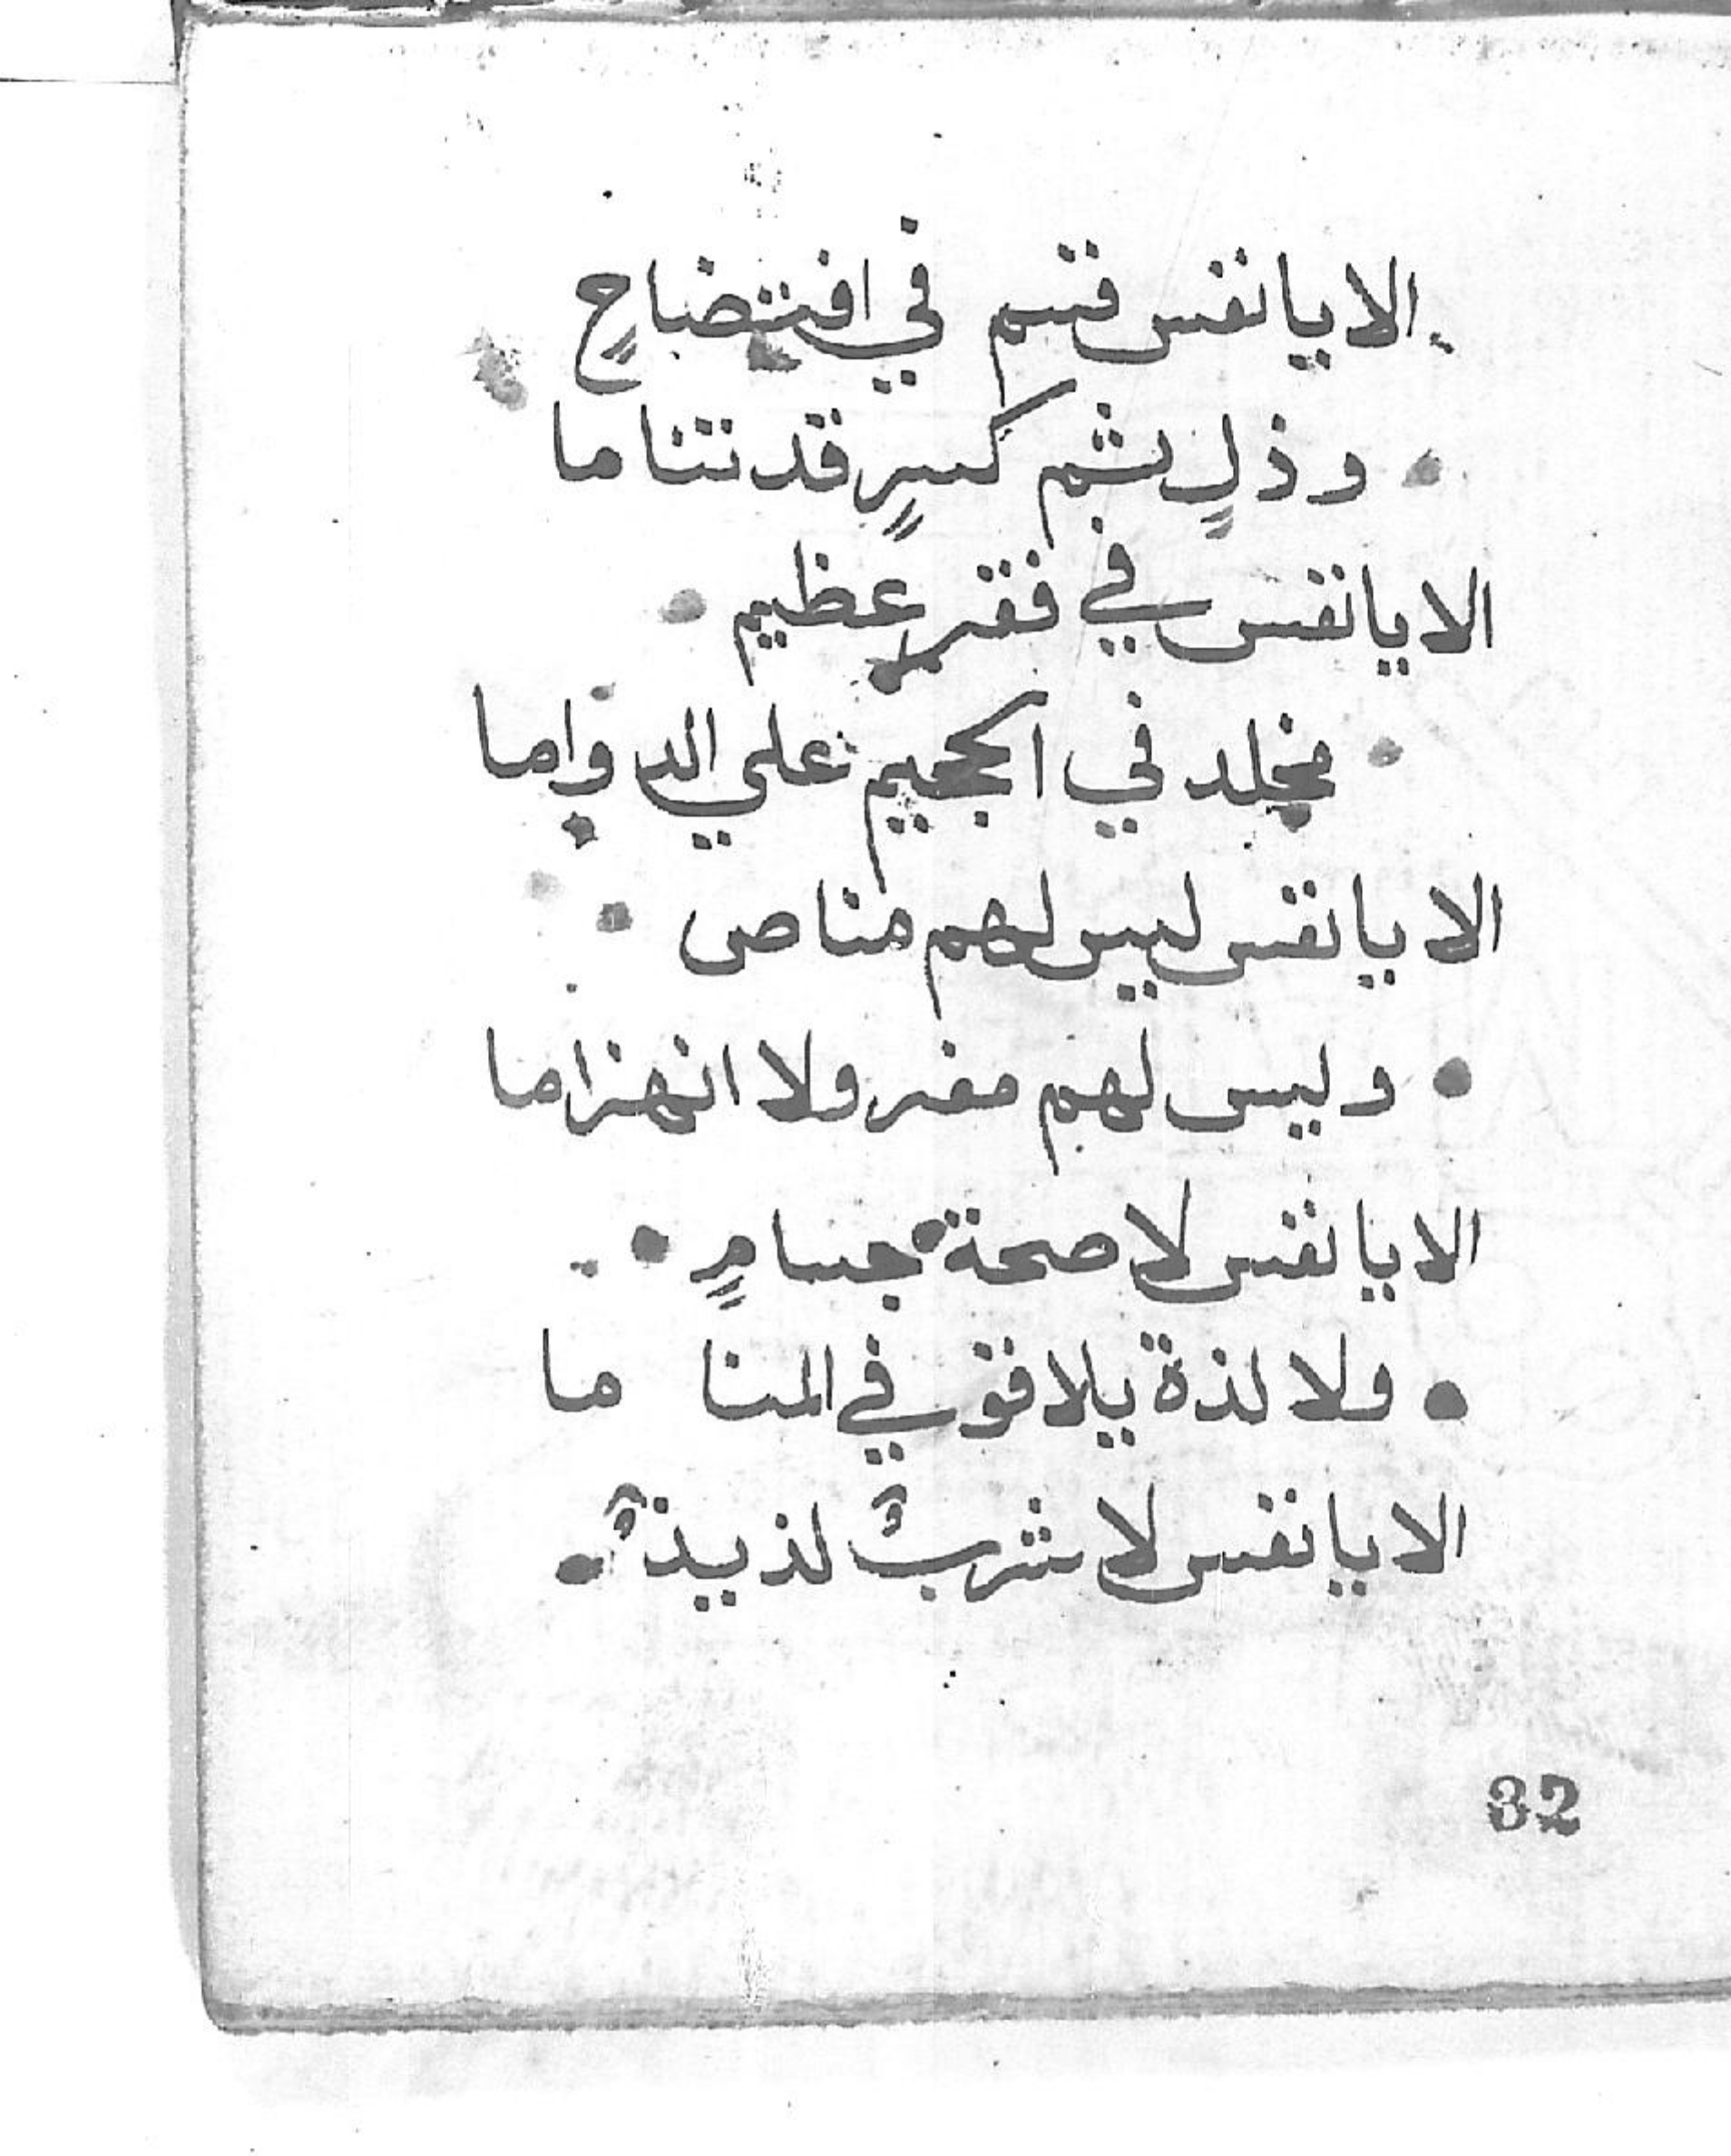 الا يا نفس قتسم في افتضاحٍ
وذلٍ بثم كسرٍ قد تتناما
الا يا نفس في فقر عظيم
مخلد في الجحيم علي الدواما
الا يا نفس ليس لهم مناص
وليس لهم مفر ولا انهزاما
الا يا نفس لا صحة جسامٍ
ولا لذة يلاقو في المناما
الا يا نفس لا شربٌ لذيذٌ
32